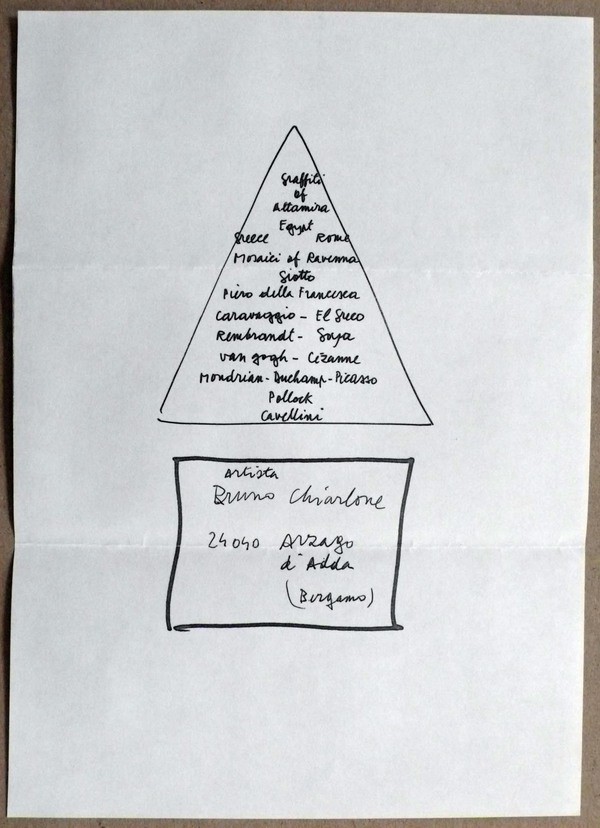 Graffiti
of
Altamira
Egypt
Greece Rome
Mosaici of Ravenna
Giotto
Piero della Francesca
Caravaggio - El Greco
Rembrandt - Goya
van gogh - Cézanne
Mondrian - Duchamp - Picasso
Pollock
Cavellini
Artista
Bruno Chiarlone
24040 Arzago
d'Adda
(Bergamo)